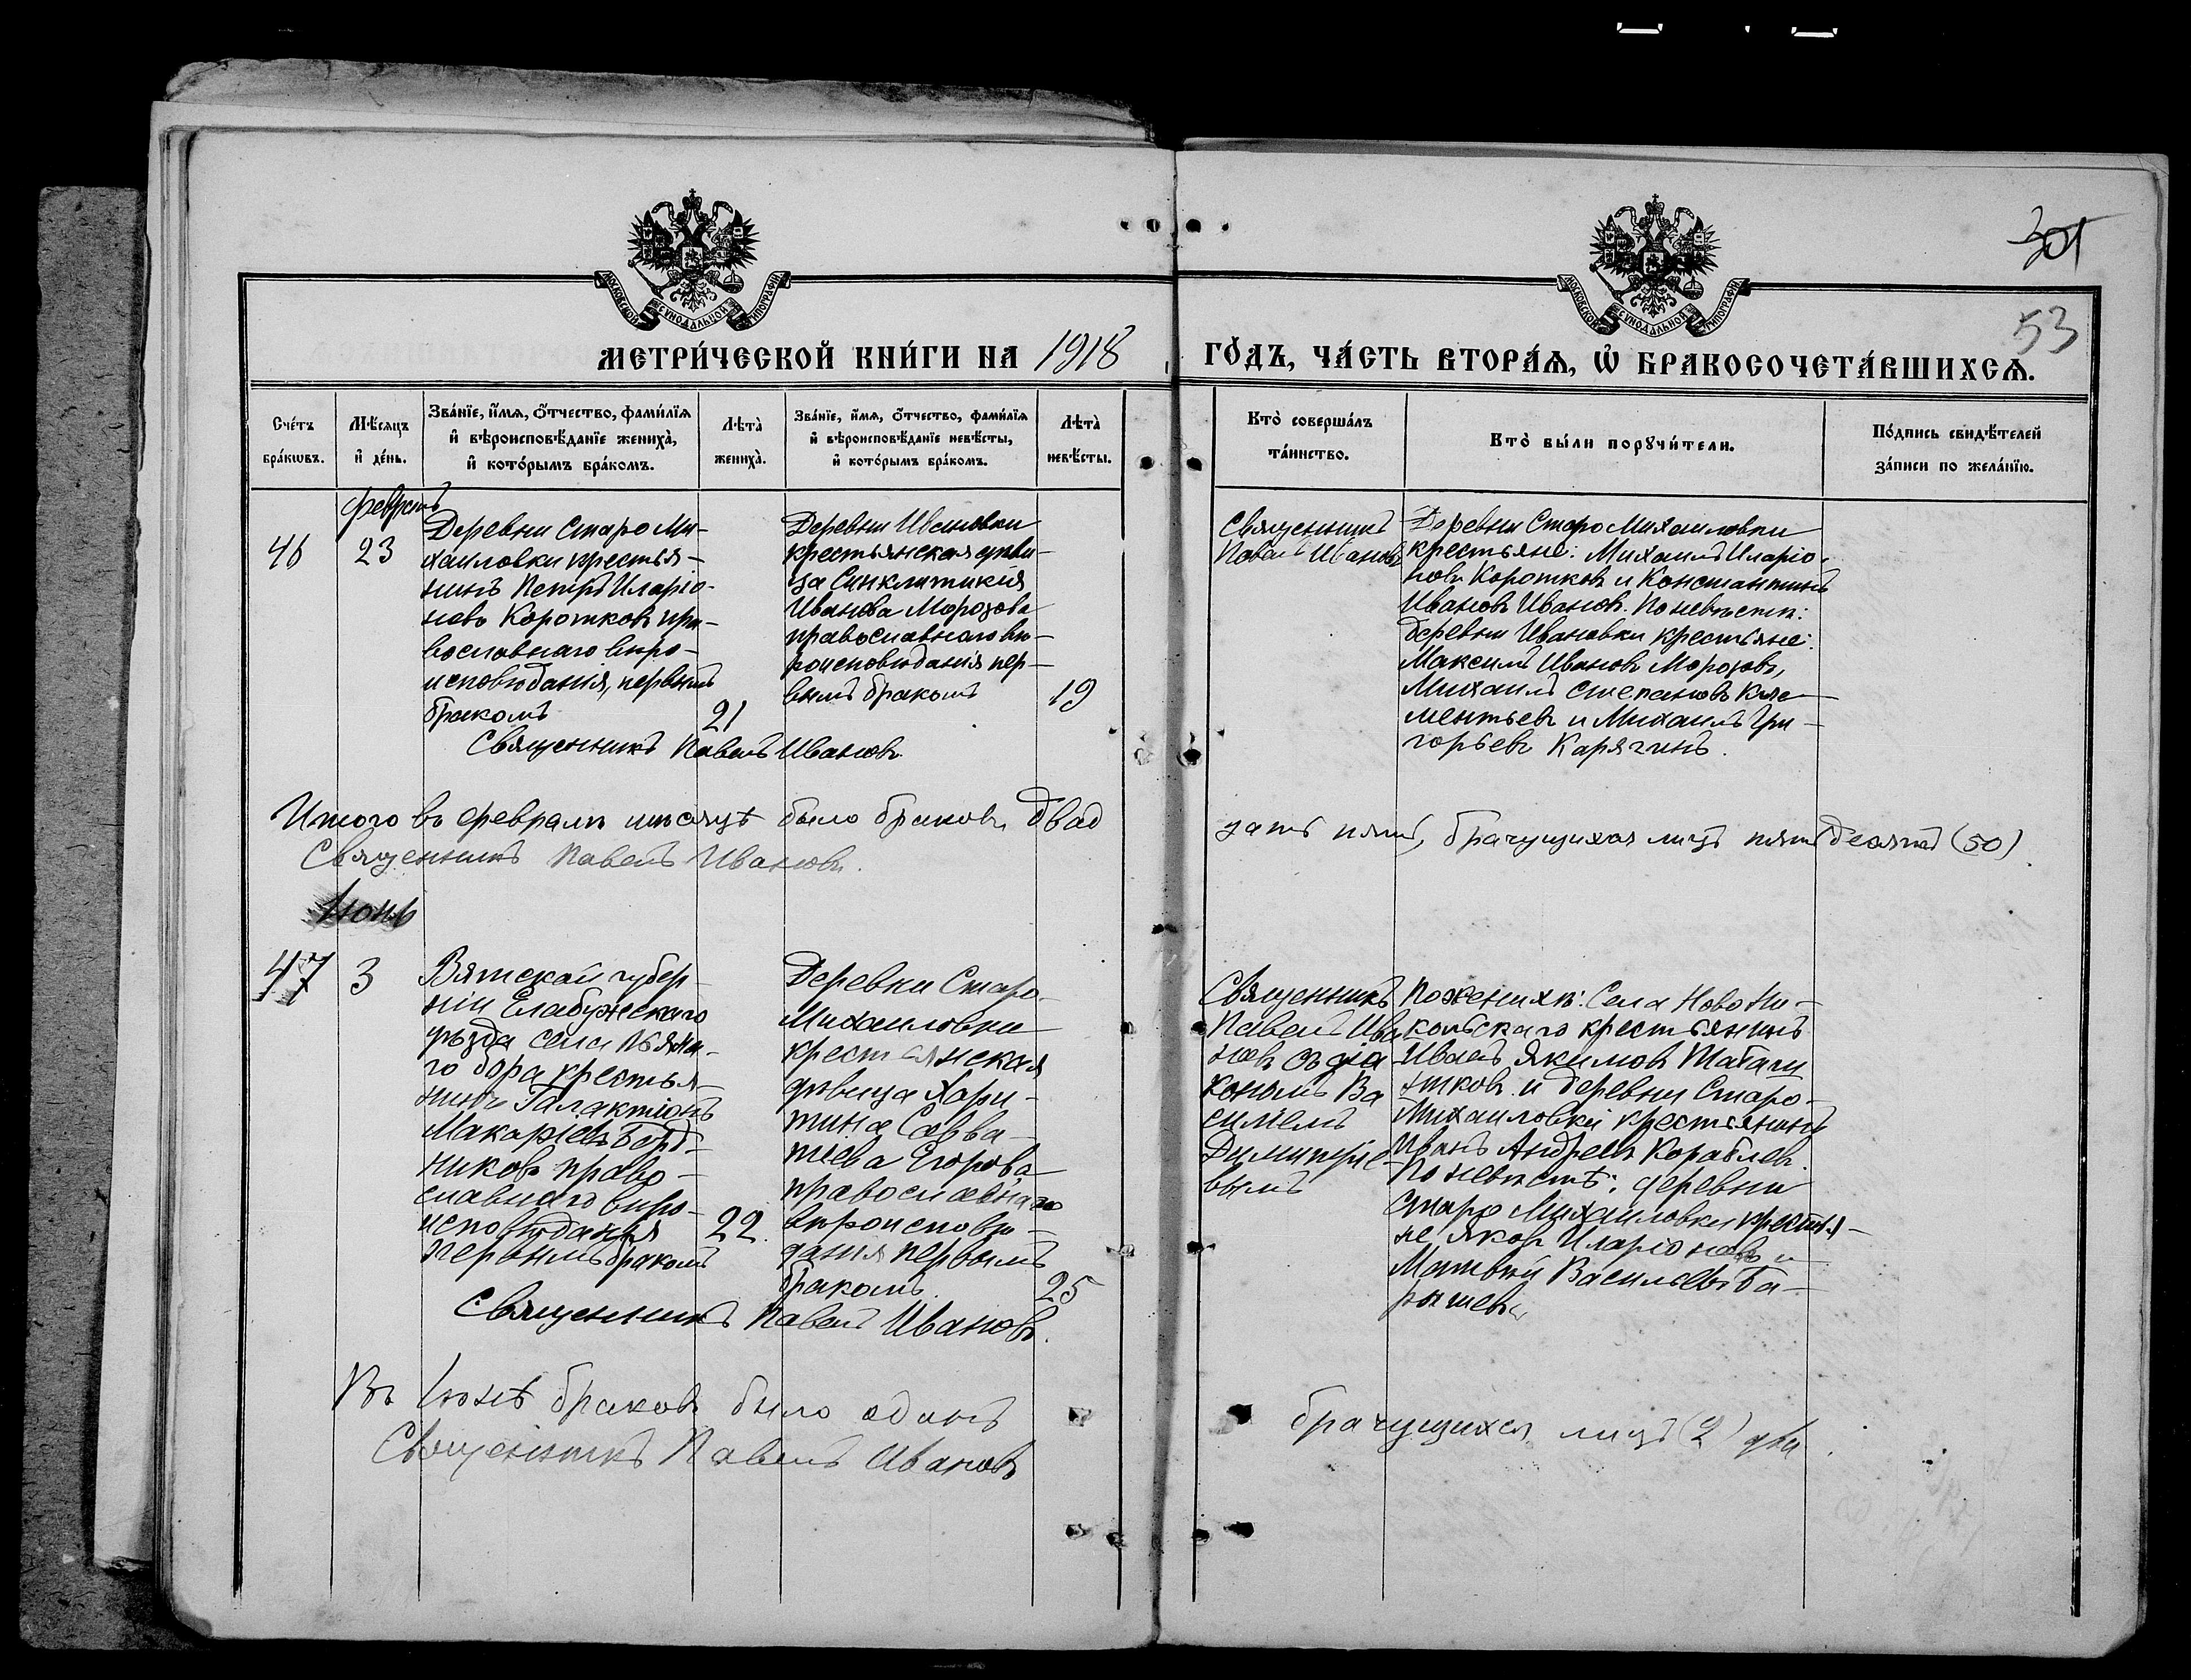 301
53
МОСКОВСКОЙ СѴНОДАЛЬНОЙ ТИПОГРАФІИ
МОСКОВСКОЙ СѴНОДАЛЬНОЙ ТИПОГРАФІИ
МЕТРИ́ЧЕСКОЙ КНИ́ГИ НА 1918 ГО́ДЪ, ЧА́СТЬ ВТОРА́Ѧ, Ѡ҆ БРАКОСОЧЕТА́ВШИХСѦ.
Сче́тъ
бра́кѡвъ.
Мѣ́сѧцъ
и҆ де́нь.
Зва́нїе, и҆́мѧ, ѻ҆́тчество, фами́лїѧ
и҆ вѣроисповѣ́данїе жениха̀,
и҆ кото́рымъ бра́комъ.
Лѣта̀
жениха̀.
Зва́нїе, и҆́мѧ, ѻ҆́тчество, фами́лїѧ
и҆ вѣроисповѣ́данїе невѣ́сты,
и҆ кото́рымъ бра́комъ.
Лѣта̀
невѣ́сты.
Кто̀ соверша́лъ
та́инство.
Кто̀ бы́ли порꙋчи́тели.
По́дпись свидѣ́телей
за́писи по жела́нїю.
46
23
Деревни Старо Ми-
хаиловки крестья-
нинъ Петръ Иларіо-
новъ Коротковъ пра-
вославнаго вѣро-
исповѣданія, первымъ
бракомъ
21
Деревни Ивановки
крестьянская дѣви-
ца Синклитикія
Иванова Морозова
православнаго вѣ-
роисповѣданія пер-
вымъ бракомъ
19
Священникъ Павелъ Ивановъ
Священникъ
Павелъ Ивановъ
Деревни Старо Михаиловки
крестьяне: Михаилъ Иларіо-
новъ Коротковъ и Константинъ
Ивановъ Ивановъ. По невѣстѣ:
деревни Ивановки крестьяне:
Максимъ Ивановъ Морозовъ,
Михаилъ Степановъ Кле-
ментьевъ и Михаилъ Гри-
горьевъ Карягинъ.
Итого въ февралѣ мѣсяцѣ было браковъ двад
цать пять, брачущихся лицъ пятьдесятъ (50)
Священникъ Павелъ Ивановъ.
Іюнь
47
3
Вятской губер-
ніи Елабужскаго
уѣзда села Пьяна-
го бора крестья-
нинъ Галактіонъ
Макаріевъ
никовъ право-
славнаго вѣро-
исповѣданія
первымъ бракомъ
22.
Деревни Старо-
Михаиловки
крестьянская
дѣвица Хари-
тина Савва-
тіева Егорова
православнаго
вѣроисповѣ-
данія первымъ
бракомъ.
25
Священникъ Павелъ Ивановъ.
Священникъ
Павелъ Ива
новъ съ діа
кономъ Ва
силіемъ
Димитріе-
вымъ
По женихѣ: Села Ново Ни-
кольскаго крестьянинъ
Иванъ Якимовъ Табач
никовъ и деревни Старо-
Михаиловки крестьянинъ
Иванъ Андреевъ Кораблев.
По невѣстѣ: деревни
Старо Михаиловки крестья-
не Яковъ Иларіоновъ и
Матвѣй Васильевъ Ба-
рышевы
Въ Іюнѣ браковъ было одинъ
брачущихся лицъ (2) два.
Священникъ Павелъ Ивановъ